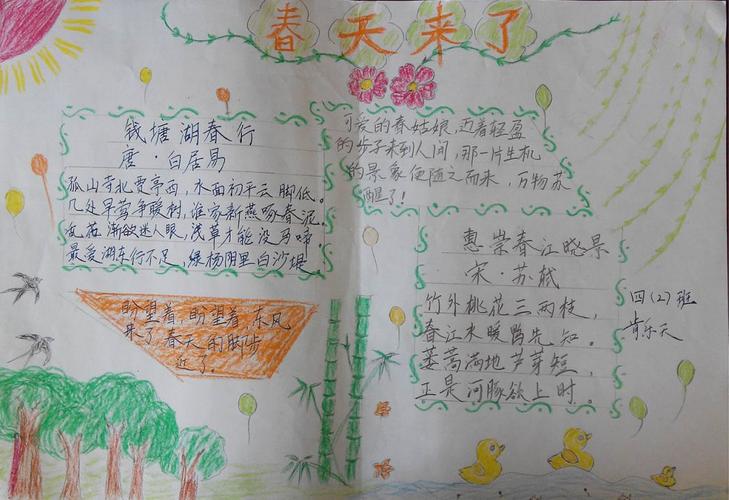 春天来了
钱塘湖春行
唐·白居易
孤山寺北贾亭西，水面初平云脚低。
几处早莺争暖树，谁家新燕啄春泥。
乱花渐欲迷人眼，浅草才能没马啼，
最爱湖东行不足，绿杨阴里白沙堤。
可爱的春姑娘，迈着轻盈
的步子来到人间，那一片生机
的景象便随之而来，万物苏
醒了！
盼望着，盼望着，东风
来了春天的脚步
近了。
惠崇春江晓景
宋·苏轼
竹外桃花三两枝，
春江水暖鸭先知。
蒌蒿满地芦芽短，
正是河豚欲上时。
四（2）班
乐天